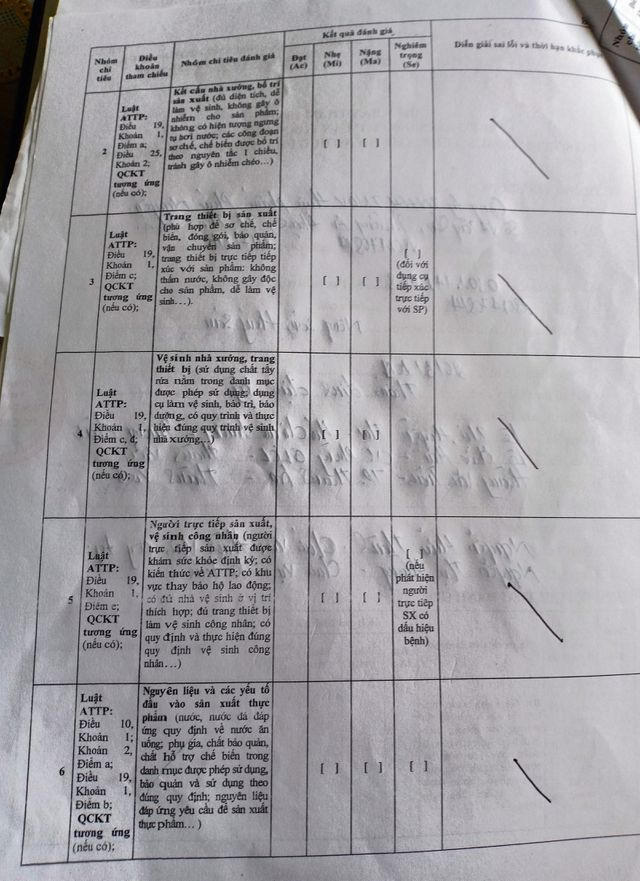 Nhóm chỉ tiêu
Điều khoản tham chiếu
Nhóm chỉ tiêu đánh giá
Kết quả đánh giá
Đạt (Ac)
Nhẹ (Mi)
Nặng (Ma)
Nghiêm trọng (Se)
Diễn giải sai lỗi và thời hạn khắc phục
2
Luật
ATTP:
Điều 19,
Khoản 1,
Điểm a;
Điều 25,
Khoản 2;
QCKT
tương ứng
(nếu có);
Kết cấu nhà xưởng, bố trí
sản xuất (đủ diện tích, dễ
làm vệ sinh, không gây ô
nhiễm cho sản phẩm;
không có hiện tượng ngưng
tụ hơi nước; các công đoạn
sơ chế, chế biến được bố trí
theo nguyên tắc 1 chiều,
tránh gây ô nhiễm chéo…)
[ ] [ ]
3
Luật
ATTP:
Điều 19,
Khoản 1,
Điểm c;
QCKT
tương ứng
(nếu có);
Trang thiết bị sản xuất
(phù hợp để sơ chế, chế
biến, đóng gói, bảo quản,
vận chuyển sản phẩm;
trang thiết bị trực tiếp tiếp
xúc với sản phẩm: không
thấm nước, không gây độc
cho sản phẩm, dễ làm vệ
sinh…).
[ ] [ ]
[ ]
(đối với
dụng cụ
tiếp xúc
trực tiếp
với SP)
4
Luật
ATTP:
Điều 19,
Khoản 1,
Điểm c, d;
QCKT
tương ứng
(nếu có);
Vệ sinh nhà xưởng, trang
thiết bị (sử dụng chất tẩy
rửa nằm trong danh mục
được phép sử dụng; dụng
cụ làm vệ sinh, bảo trì, bảo
dưỡng, có quy trình và thực
hiện đúng quy trình vệ sinh
nhà xưởng,..)
[ ] [ ]
5
Luật
ATTP:
Điều 19,
Khoản 1,
Điểm e;
QCKT
tương ứng
(nếu có);
Người trực tiếp sản xuất,
vệ sinh công nhân (người
trực tiếp sản xuất được
khám sức khỏe định kỳ; có
kiến thức về ATTP; có khu
vực thay bảo hộ lao động;
có đủ nhà vệ sinh ở vị trí
thích hợp; đủ trang thiết bị
làm vệ sinh công nhân; có
quy định và thực hiện đúng
quy định vệ sinh công
nhân…)
[ ] [ ]
[ ]
(nếu
phát hiện
người
trực tiếp
SX có
dấu hiệu
bệnh)
6
Luật
ATTP:
Điều 10,
Khoản 1;
Khoản 2,
Điểm a;
Điều 19,
Khoản 1,
Điểm b;
QCKT
tương ứng
(nếu có);
Nguyên liệu và các yếu tố
đầu vào sản xuất thực
phẩm (nước, nước đá đáp
ứng quy định về nước ăn
uống; phụ gia, chất bảo quản,
chất hỗ trợ chế biến trong
danh mục được phép sử dụng,
bảo quản và sử dụng theo
đúng quy định; nguyên liệu
đáp ứng yêu cầu để sản xuất
thực phẩm… )
[ ] [ ] [ ]